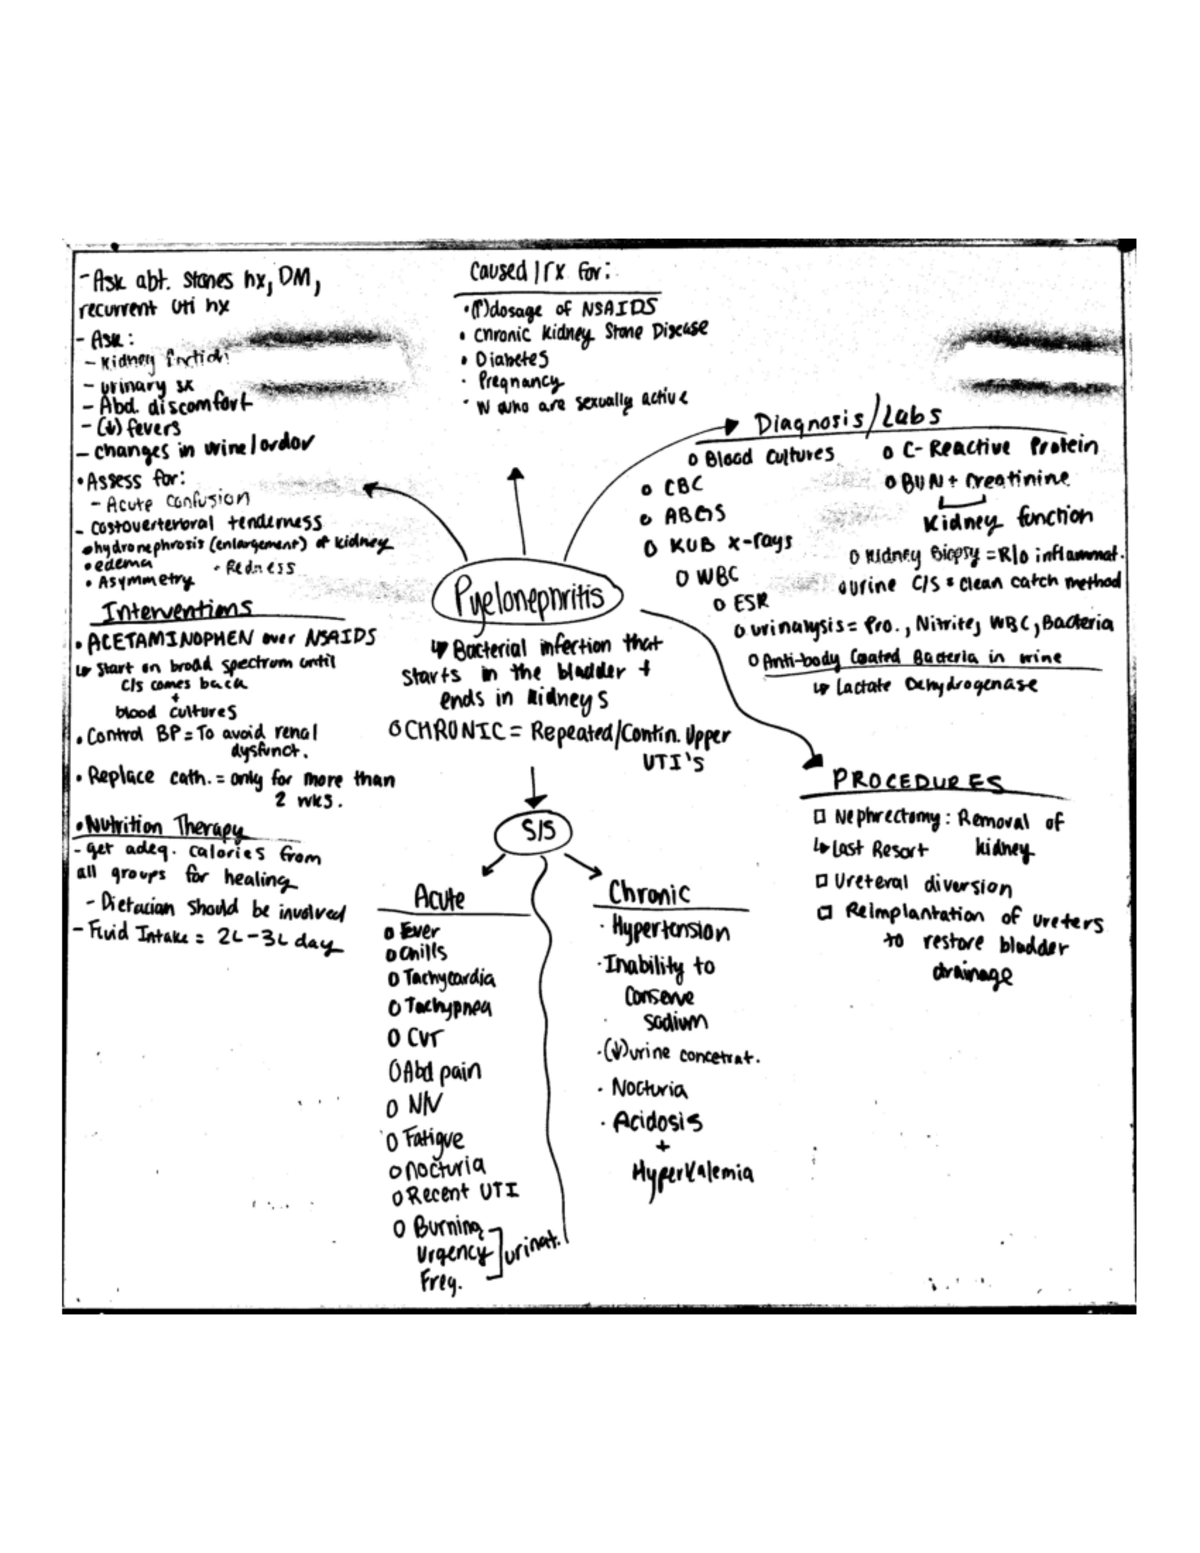 - Ask abt. stones hx, DM,
recurrent uti hx
- Ask:
- Kidney
- urinary sx
- Abd. discomfort
- (↓) fevers
- changes in urine/ordor
• Assess for:
- Acute confusion
- costoverterbral tenderness
• hydronephrosis (enlargement) of kidney
• edema • Redness
• Asymmetry
Interventions
• ACETAMINOPHEN over NSAIDS
↳ Start on broad spectrum until
C/s comes back
+
blood cultures
• Control BP = To avoid renal
dysfunct.
• Replace cath. = only for more than
2 wks.
• Nutrition Therapy
- get adeq. calories from
all groups for healing
- Dietacian should be involved
- Fluid Intake = 2L-3L day
Caused / rx for:
• (↑) dosage of NSAIDS
• Chronic Kidney Stone Disease
• Diabetes
• Pregnancy
• W who are sexually active
Pyelonephritis
↳ Bacterial infection that
starts in the bladder +
ends in kidneys
○ CHRONIC = Repeated/Contin. Upper
UTI's
S/S
Acute
○ Fever
○ Chills
○ Tachycardia
○ Tachypnea
○ CVT
○ Abd pain
○ N/V
○ Fatigue
○ nocturia
○ Recent UTI
○ Burning
Urgency
Freq.
urinat.
Chronic
• Hypertension
• Inability to
Conserve
sodium
• (↓) urine concetrat.
• Nocturia
• Acidosis
+
Hyperkalemia
Diagnosis/Labs
○ Blood Cultures
○ CBC
○ ABGS
○ KUB x-rays
○ WBC
○ ESR
○ C-Reactive Protein
○ BUN + Creatinine
Kidney function
○ Kidney Biopsy = R/o inflammat.
○ urine C/S = clean catch method
○ urinalysis = Pro., Nitrite, WBC, Bacteria
○ Anti-body Coated Bacteria in urine
↳ Lactate Dehydrogenase
PROCEDURES
□ Nephrectomy: Removal of
↳ Last Resort kidney
□ Ureteral diversion
□ Reimplantation of ureters
to restore bladder
drainage